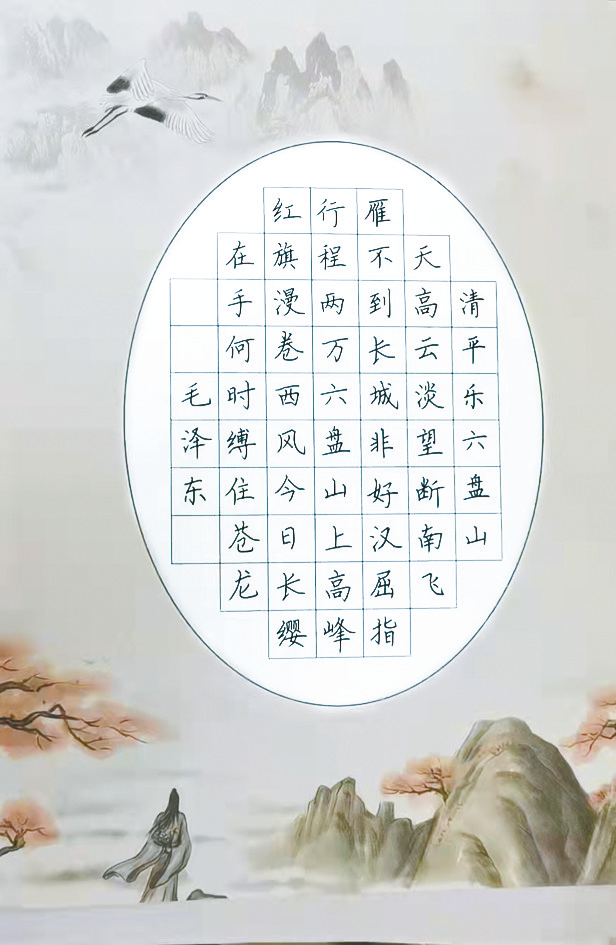 清平乐六盘山
天高云淡望断南飞
雁不到长城非好汉屈指
行程两万六盘山上高峰
红旗漫卷西风今日长缨
在手何时缚住苍龙
毛泽东